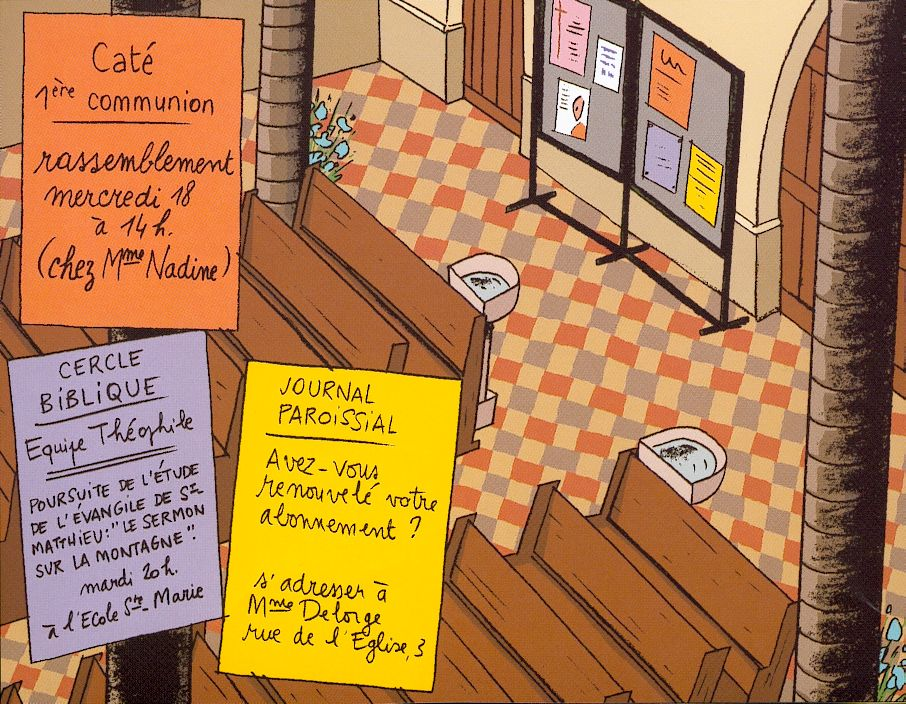 Caté
1ère communion
rassemblement
mercredi 18
à 14 h.
(chez Mme Nadine)
CERCLE
BIBLIQUE
Equipe Théophile
POURSUITE DE L'ÉTUDE
DE L'ÉVANGILE DE St.
MATTHIEU: "LE SERMON
SUR LA MONTAGNE".
mardi 20h.
à l'Ecole Ste. Marie
JOURNAL
PAROISSIAL
Avez-vous
renouvelé votre
abonnement ?
s'adresser à
Mme Delorge
rue de l'Eglise, 3